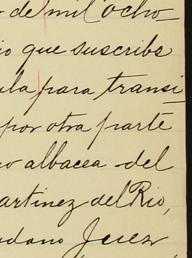 de mil ocho
io que suscribe
ula para transi
por otra parte
albacea del
artinez del Rio,
dadano Juez